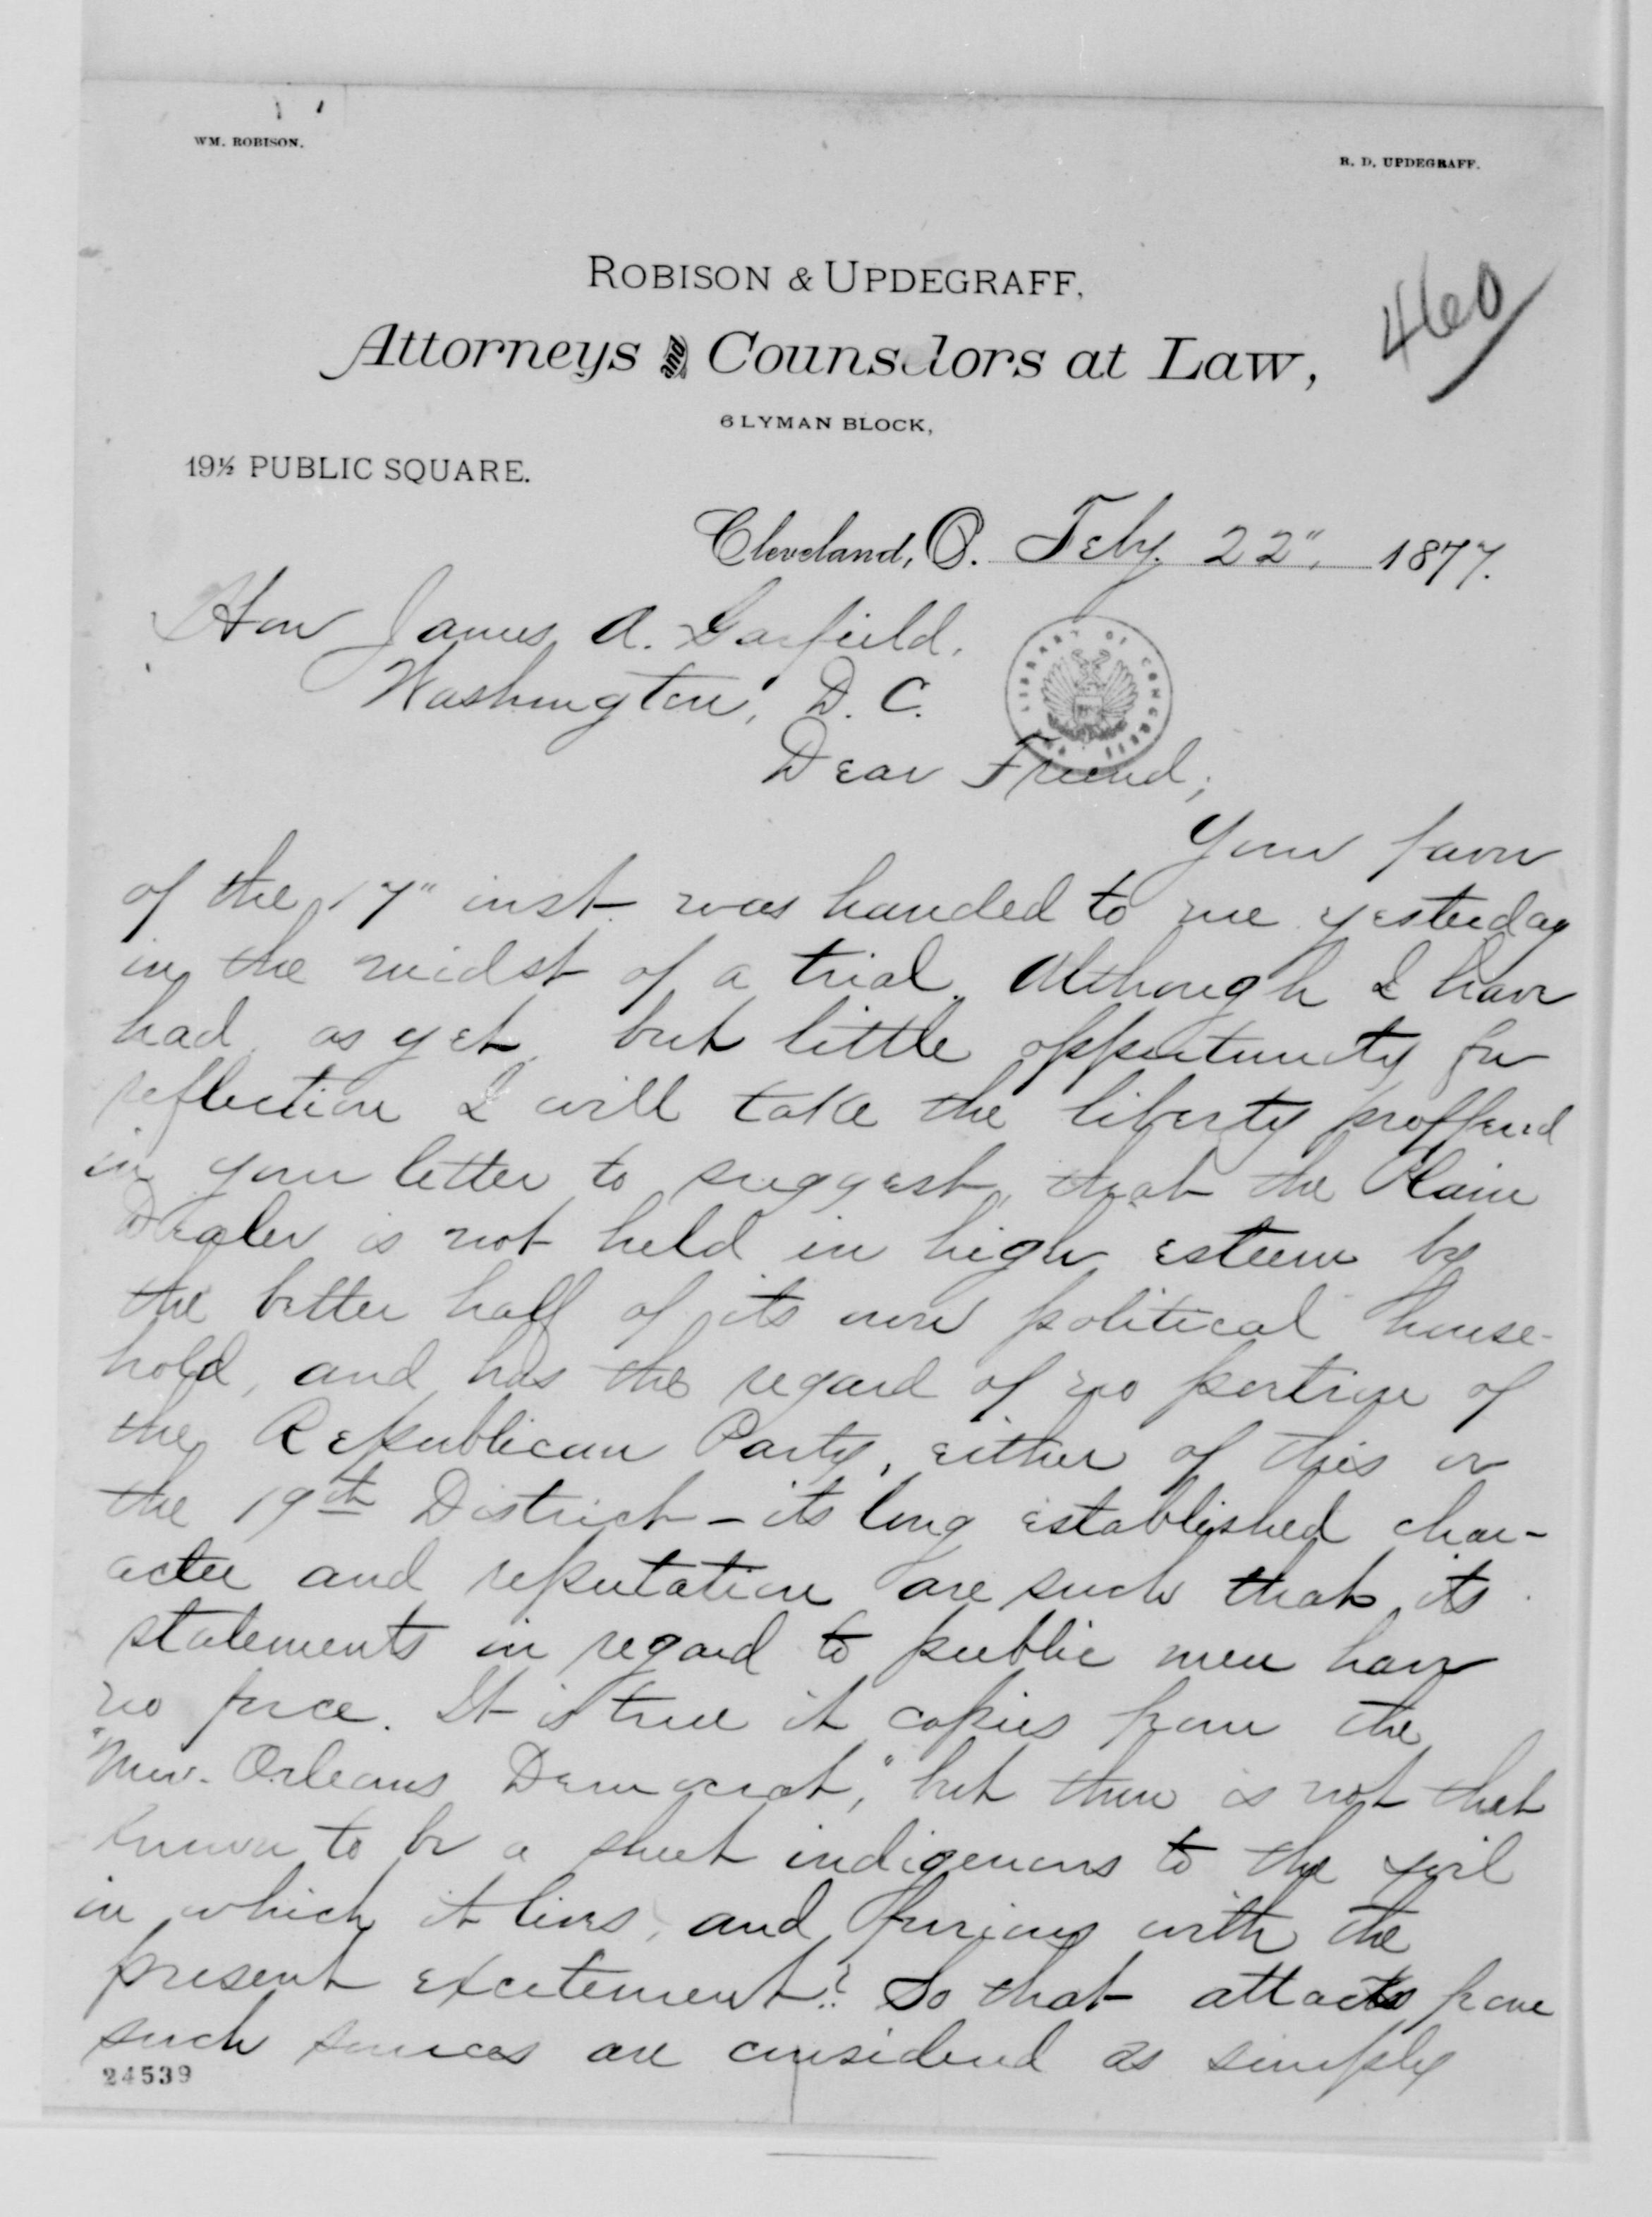 WM. ROBISON.
R. D. UPDEGRAFF.
ROBISON & UPDEGRAFF,
460
Attorneys and Counselors at Law,
6 LYMAN BLOCK,
19½ PUBLIC SQUARE.
Cleveland, O. Feby. 22", 1877.
Hon James A. Garfield.
Washington, D. C.
LIBRARY OF CONGRESS
Dear Friend;
Your favor
of the 17" inst. was handed to me yesterday
in the midst of a trial. Although I have
had, as yet, but little opportunity for
reflection I will take the liberty proffered
in your letter to suggest, that the Plain
Dealer is not held in high esteem by
the better half of its own political house-
hold, and has the regard of no portion of
the Republican Party, either of this or
the 19th District - its long established char-
acter and reputation are such that its
statements in regard to public men have
no force. It is true it copies from the
"New-Orleans Democrat," but then is not that
known to be a sheet indigenous to the soil
in which it lives, and furious with the
present excitement? So that attacks from
such sources are considered as simply
24539